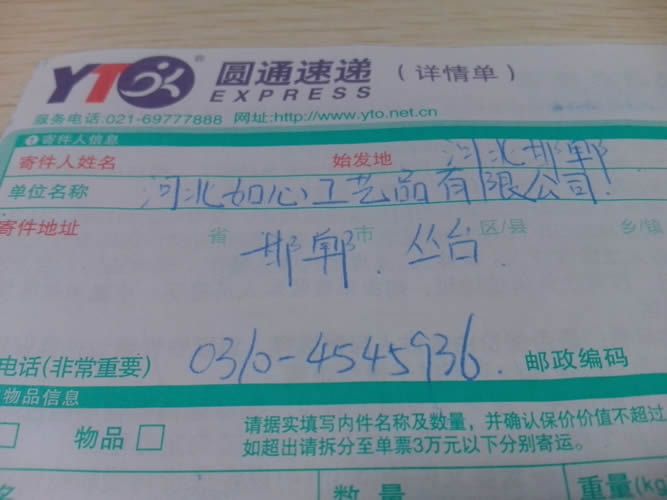 YTO® 圆通速递 (详情单)
EXPRESS
服务电话:021-69777888 网址:http://www.yto.net.cn
❶寄件人信息
寄件人姓名 始发地 河北邯郸
单位名称 河北如心工艺品有限公司.
寄件地址 省 邯郸. 市 丛台. 区/县 乡/镇
电话(非常重要) 0310-4545936. 邮政编码
物品信息
物品 □ 请据实填写内件名称及数量，并确认保价价值不超过
如超出请拆分至单票3万元以下分别寄运。
数量 重量(kg